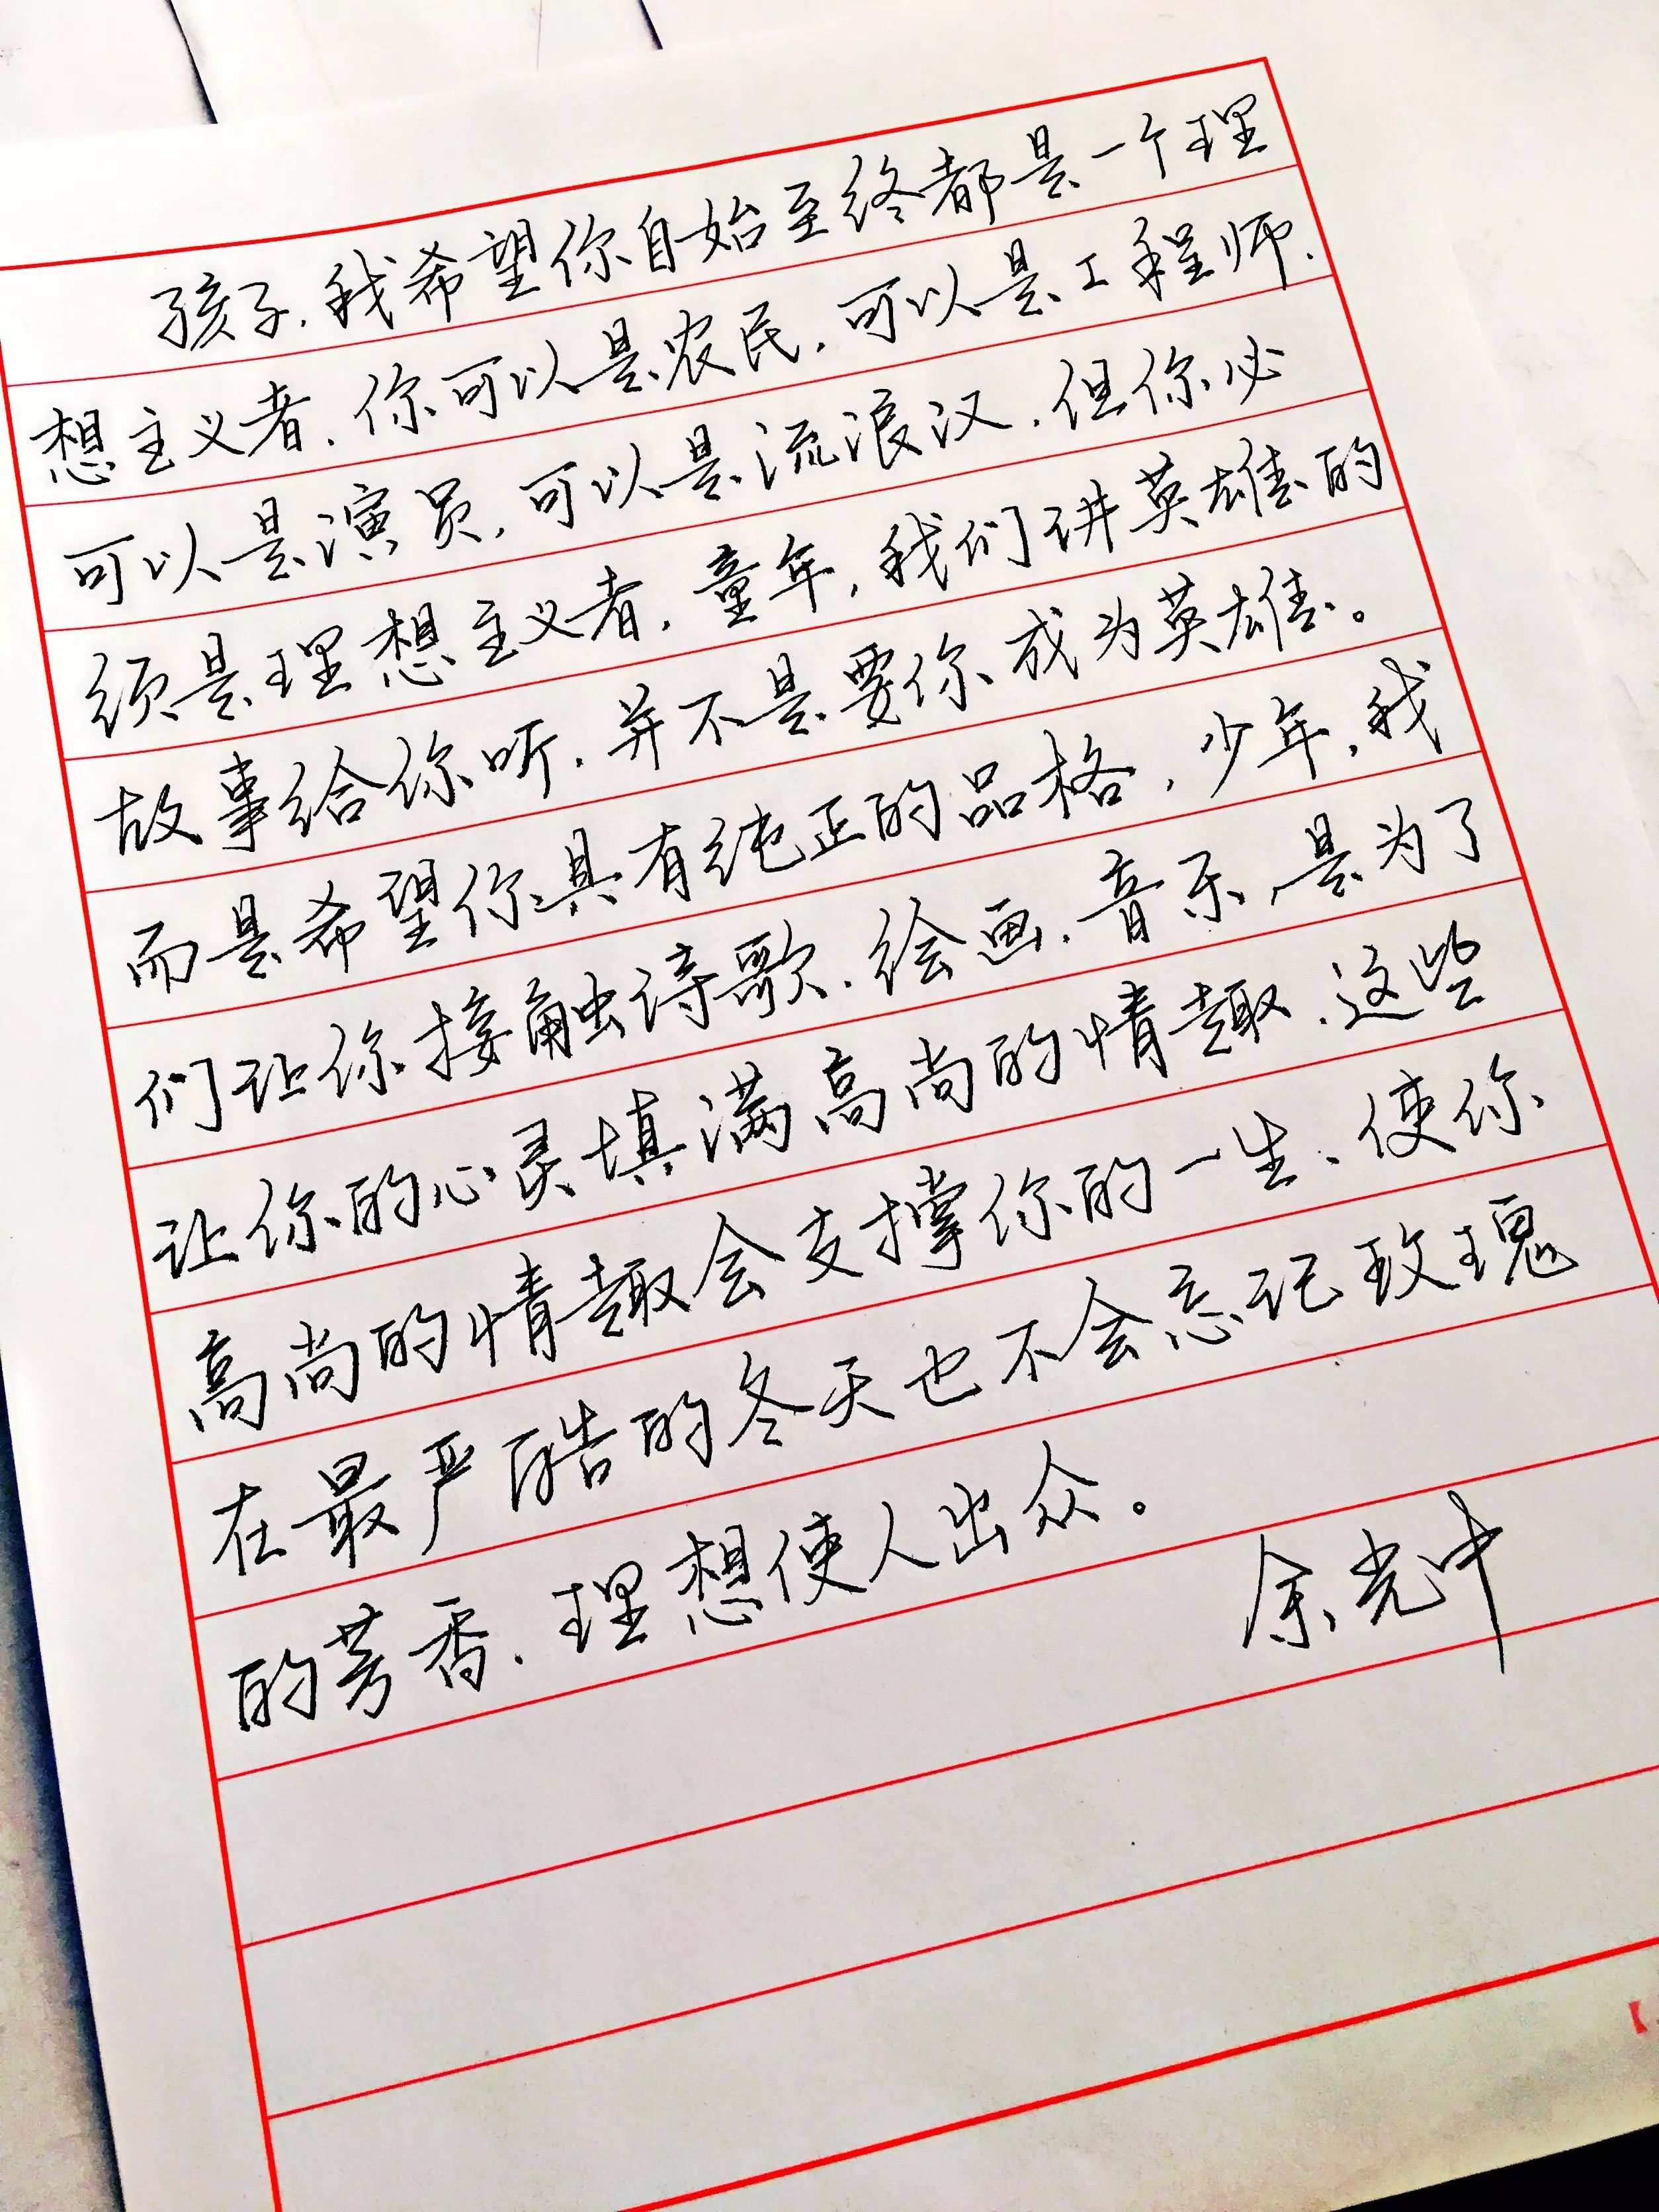 孩子.我希望你自始至终都是一个理
想主义者.你可以是农民.可以是工程师.
可以是演员.可以是流浪汉.但你必
须是理想主义者.童年,我们讲英雄的
故事给你听.并不是要你成为英雄。
而是希望你具有纯正的品格.少年,我
们让你接触诗歌.绘画.音乐,是为了
让你的心灵填满高尚的情趣.这些
高尚的情趣会支撑你的一生、使你
在最严酷的冬天也不会忘记玫瑰
的芳香.理想使人出众。
余光中